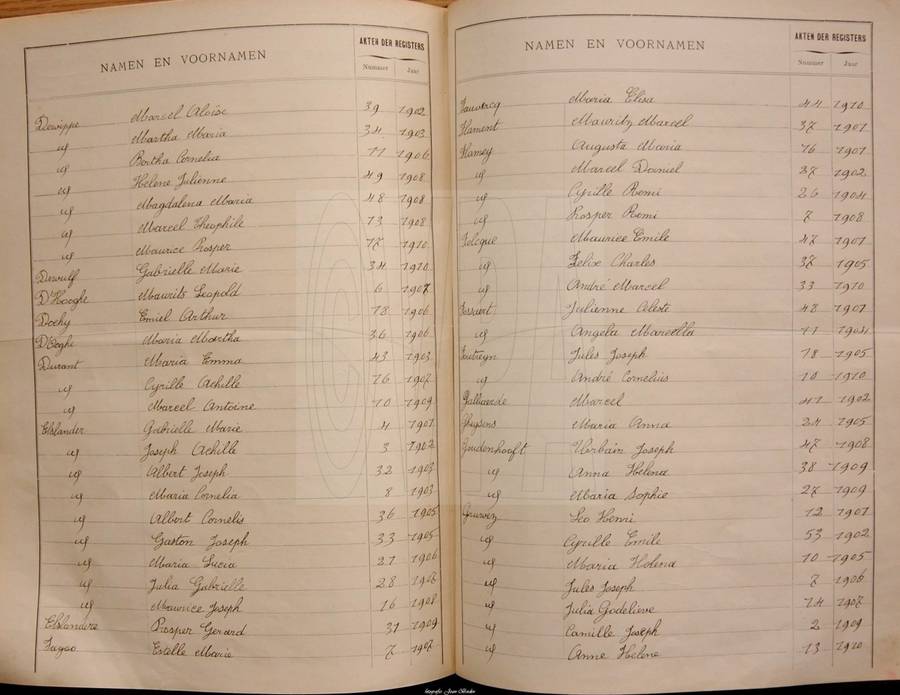 NAMEN EN VOORNAMEN AKTEN DER REGISTERS
Nummer Jaar
Dewippe Marcel Aloïse 39 1902
id Martha Maria 34 1903
id Bertha Cornelia 11 1906
id Helene Julienne 49 1908
id Magdalena Maria 48 1908
id Marcel Theophile 13 1908
id Maurice Prosper 17 1910
Dewulf Gabrielle Marie 34 1910
D'Hooghe Maurits Leopold 6 1907
Dochy Emiel Arthur 18 1906
Maria Martha 36 1906
Durant Maria Emma 43 1903
id Cyrille Achille 16 1907
id Marcel Antoine 10 1909
Elslander Gabrielle Marie 4 1901
id Joseph Achille 3 1902
id Albert Joseph 32 1903
id Maria Cornelia 8 1903
id Albert Cornelis 36 1905
id Gaston Joseph 33 1905
id Maria Lucia 21 1906
id Julia Gabrielle 28 1908
id Maurice Joseph 16 1908
Elslander Prosper Gerard 31 1909
Estelle Marie 7 1907
NAMEN EN VOORNAMEN AKTEN DER REGISTERS
Nummer Jaar
Maria Elisa 44 1910
Flament Mauritz Marcel 37 1901
Flamey Augusta Maria 16 1901
id Marcel Daniel 37 1902
id Cyrille Remi 26 1904
id Prosper Remi 7 1908
Maurice Emile 47 1901
id Felix Charles 37 1905
id André Marcel 33 1910
Julienne Celeste 48 1901
id Angela Marcella 11 1904
Jules Joseph 18 1905
id André Cornelius 10 1910
Galbaerde Marcel 41 1902
Ghysens Maria Anna 24 1905
Goudenhooft Urbain Joseph 47 1908
id Anna Helena 38 1909
id Maria Sophie 27 1909
Gruwez Leo Henri 12 1901
id Cyrille Emile 53 1902
id Maria Helena 10 1905
id Jules Joseph 7 1906
id Julia Godelieve 14 1907
id Camille Joseph 2 1909
id Anne Helene 13 1910